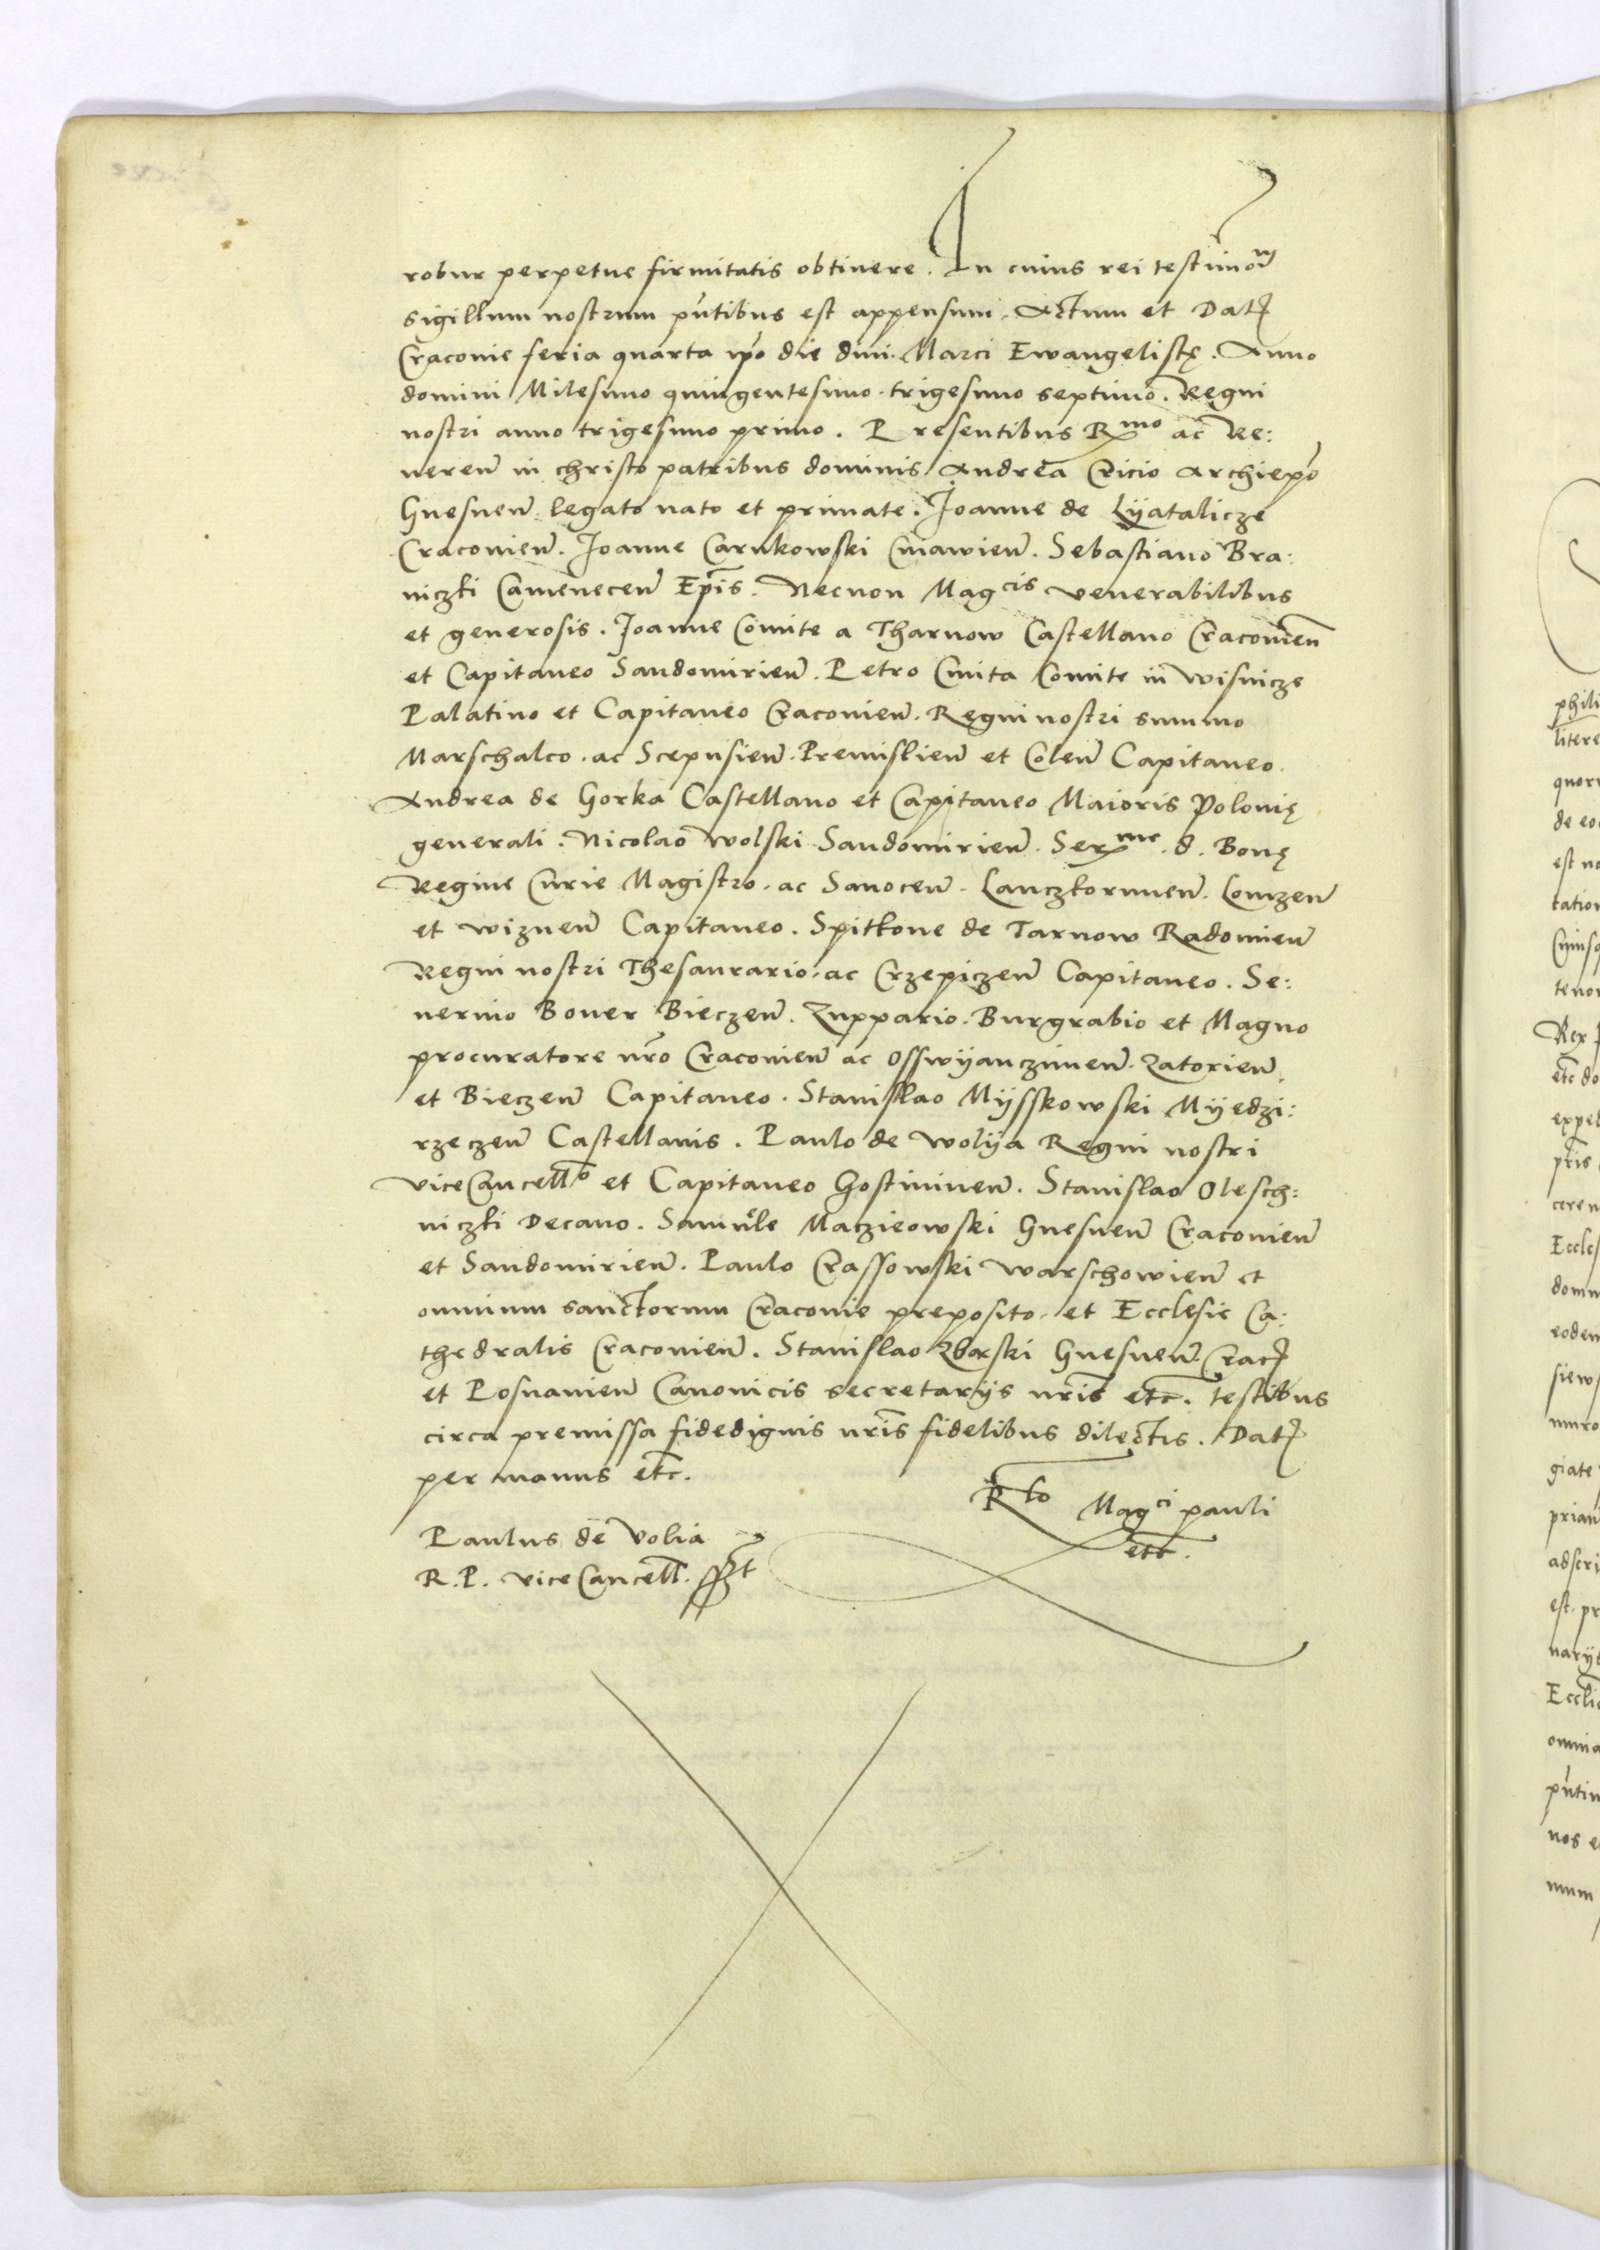 robur perpetue firmitatis obtinere. In cuius rei testimoñ
sigillum nostrum pñtibus est appensum. Actum et Datꝭ
Craconie feria quarta ipo die divi Marci Ewangelistę. Anno
domini Milesimo quingentesimo trigesimo septimo. Regni
nostri anno trigesimo primo. Presentibus Rmo ac Re:
vereñ in christo patribus dominis Andrea Cricio Archiepo
Gnesneñ legato nato et primate. Joanne de Lÿatalicze
Cracovieñ. Joanne Carnkowski Cuiawieñ. Sebastiano Bra:
niczki Cameneceñ Epis. Necnon Magcis venerabilibus
et generosis. Joanne Comite a Tharnow Castellano Cracovieñ
et Capitaneo Sandomirieñ. Petro Cmita Comite in Wisnicze
Palatino et Capitaneo Cracovieñ. Regni nostri summo
Marschalco. ac Scepusieñ. Premislieñ et Coleñ Capitaneo.
Andrea de Gorka Castellano et Capitaneo Maioris Polonię
generali. Nicolao Wolski Sandomirieñ. Serme. d. Bonę
Regine Curie Magistro. ac Sanoceñ. Lanczkorunneñ. Lomzeñ
et Wizneñ Capitaneo. Spitkone de Tarnow Radomieñ
Regni nostri Thesaurario. ac Crzepiczeñ Capitaneo. Se:
uerino Boner Bieczeñ. Zuppario. Burgrabio et Magno
procuratore nro Cracovieñ ac Osswÿanczimeñ. Zatorieñ.
et Bieczeñ Capitaneo. Stanislao Mÿsskowski Mÿedzi:
rzeczeñ Castellanis. Paulo de Wolÿa Regni nostri
vice Cancello et Capitaneo Gostinineñ. Stanislao Olesch:
niczki Decano. Samuele Maczieowski Gnesneñ Cracovieñ
et Sandomirieñ. Paulo Crassowski Warschowieñ et
omnium sanctorum Cracovie preposito. et Ecclesie Ca:
thedralis Cracovieñ. Stanislao Zborski Gnesneñ Cracꝭ
et Posnanieñ Canonicis secretarijs nris etc. testibus
circa premissa fidedignis nris fidelibus dilectis. Datꝭ
per manus etc.
Rlo Magci pauli
etc.
Paulus de Volia
R. P. vice Cancell. sspt